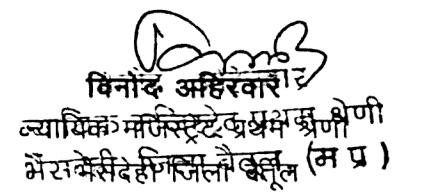 विनोद अहिरवार
न्यायिक मजिस्ट्रेट प्रथम श्रेणी
भैंसदेही जिला बैतूल (म प्र)